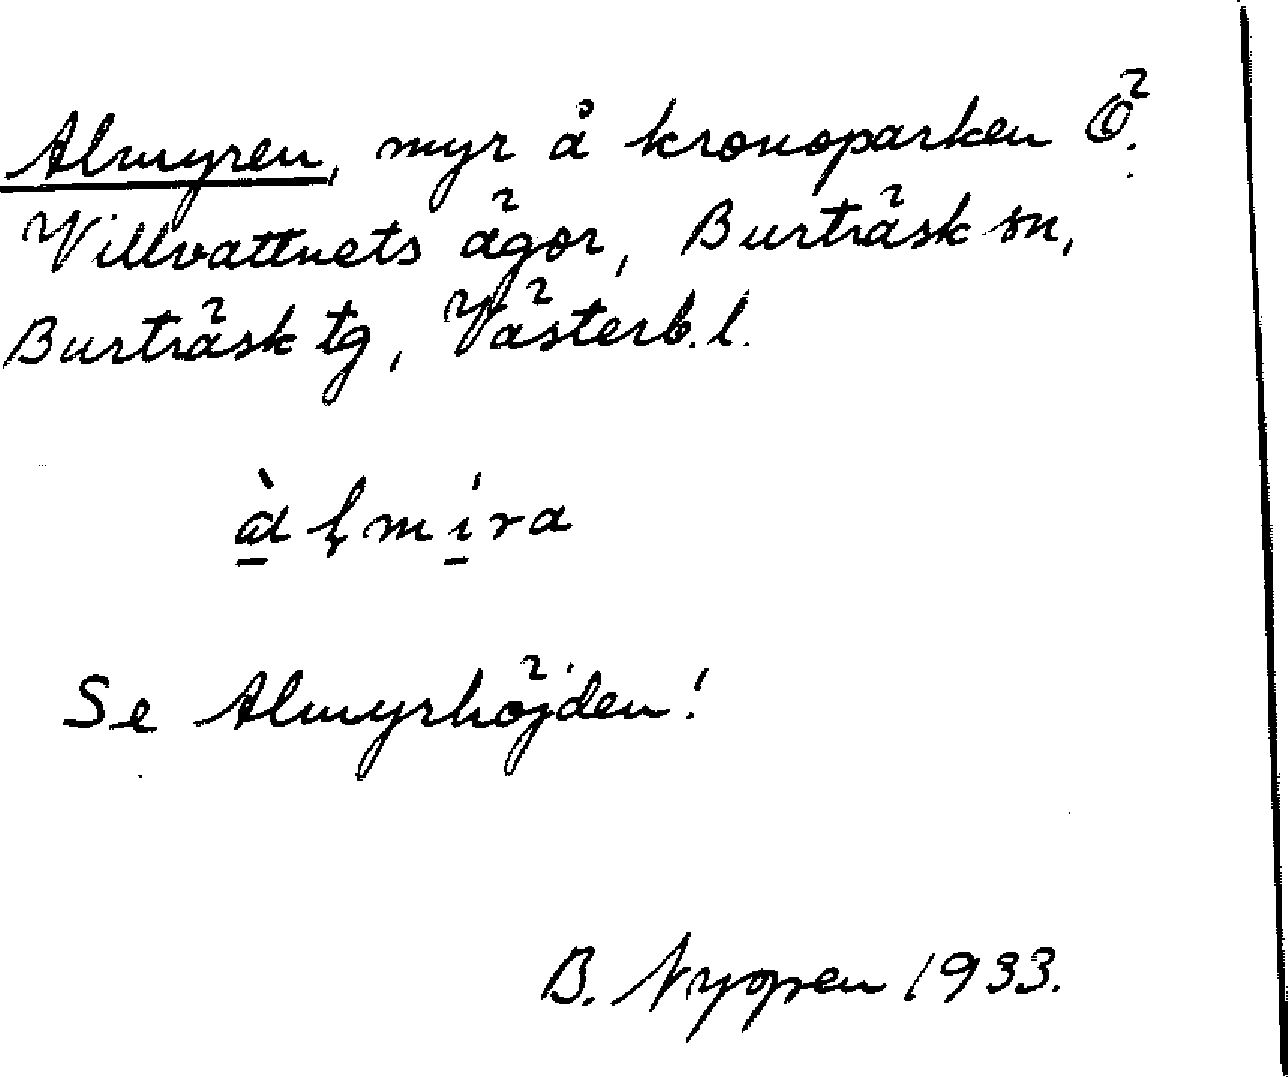 Almyren, myr å kronoparken Ö.
Villvattnets ägor, Burträsk sn,
Burträsk tg, Västerb. l.
Se Almyrhöjden!
B. Nygren 1933.